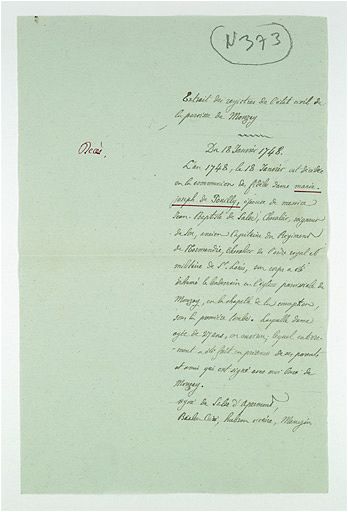 N 373
Extrait des registres de l'état civil de
la paroisse de Mouzay
Décès.
Du 18 Janvier 1748.
L'an 1748, le 18 Janvier est décédée
en la communion de fidèle dame marie-
joseph de Pouilly, épouse de messire
Jean-Baptiste de Sales, Chevalier, seigneur
de Sor, ancien Capitaine du Régiment
de Normandie, Chevalier de l'ordre royal et
militaire de St. Louis, son corps a été
inhumé le lendemain en l'église paroissiale de
Mouzay, en la chapelle de la conception,
sous la première tombe. Laquelle dame
agée de 27 ans, ou environ; lequel enterre-
ment a été fait en présence de ses parents
et amis qui ont signé avec moi Curé de
Mouzay.
signé de Sales d'Apremont
Curé, Mangin